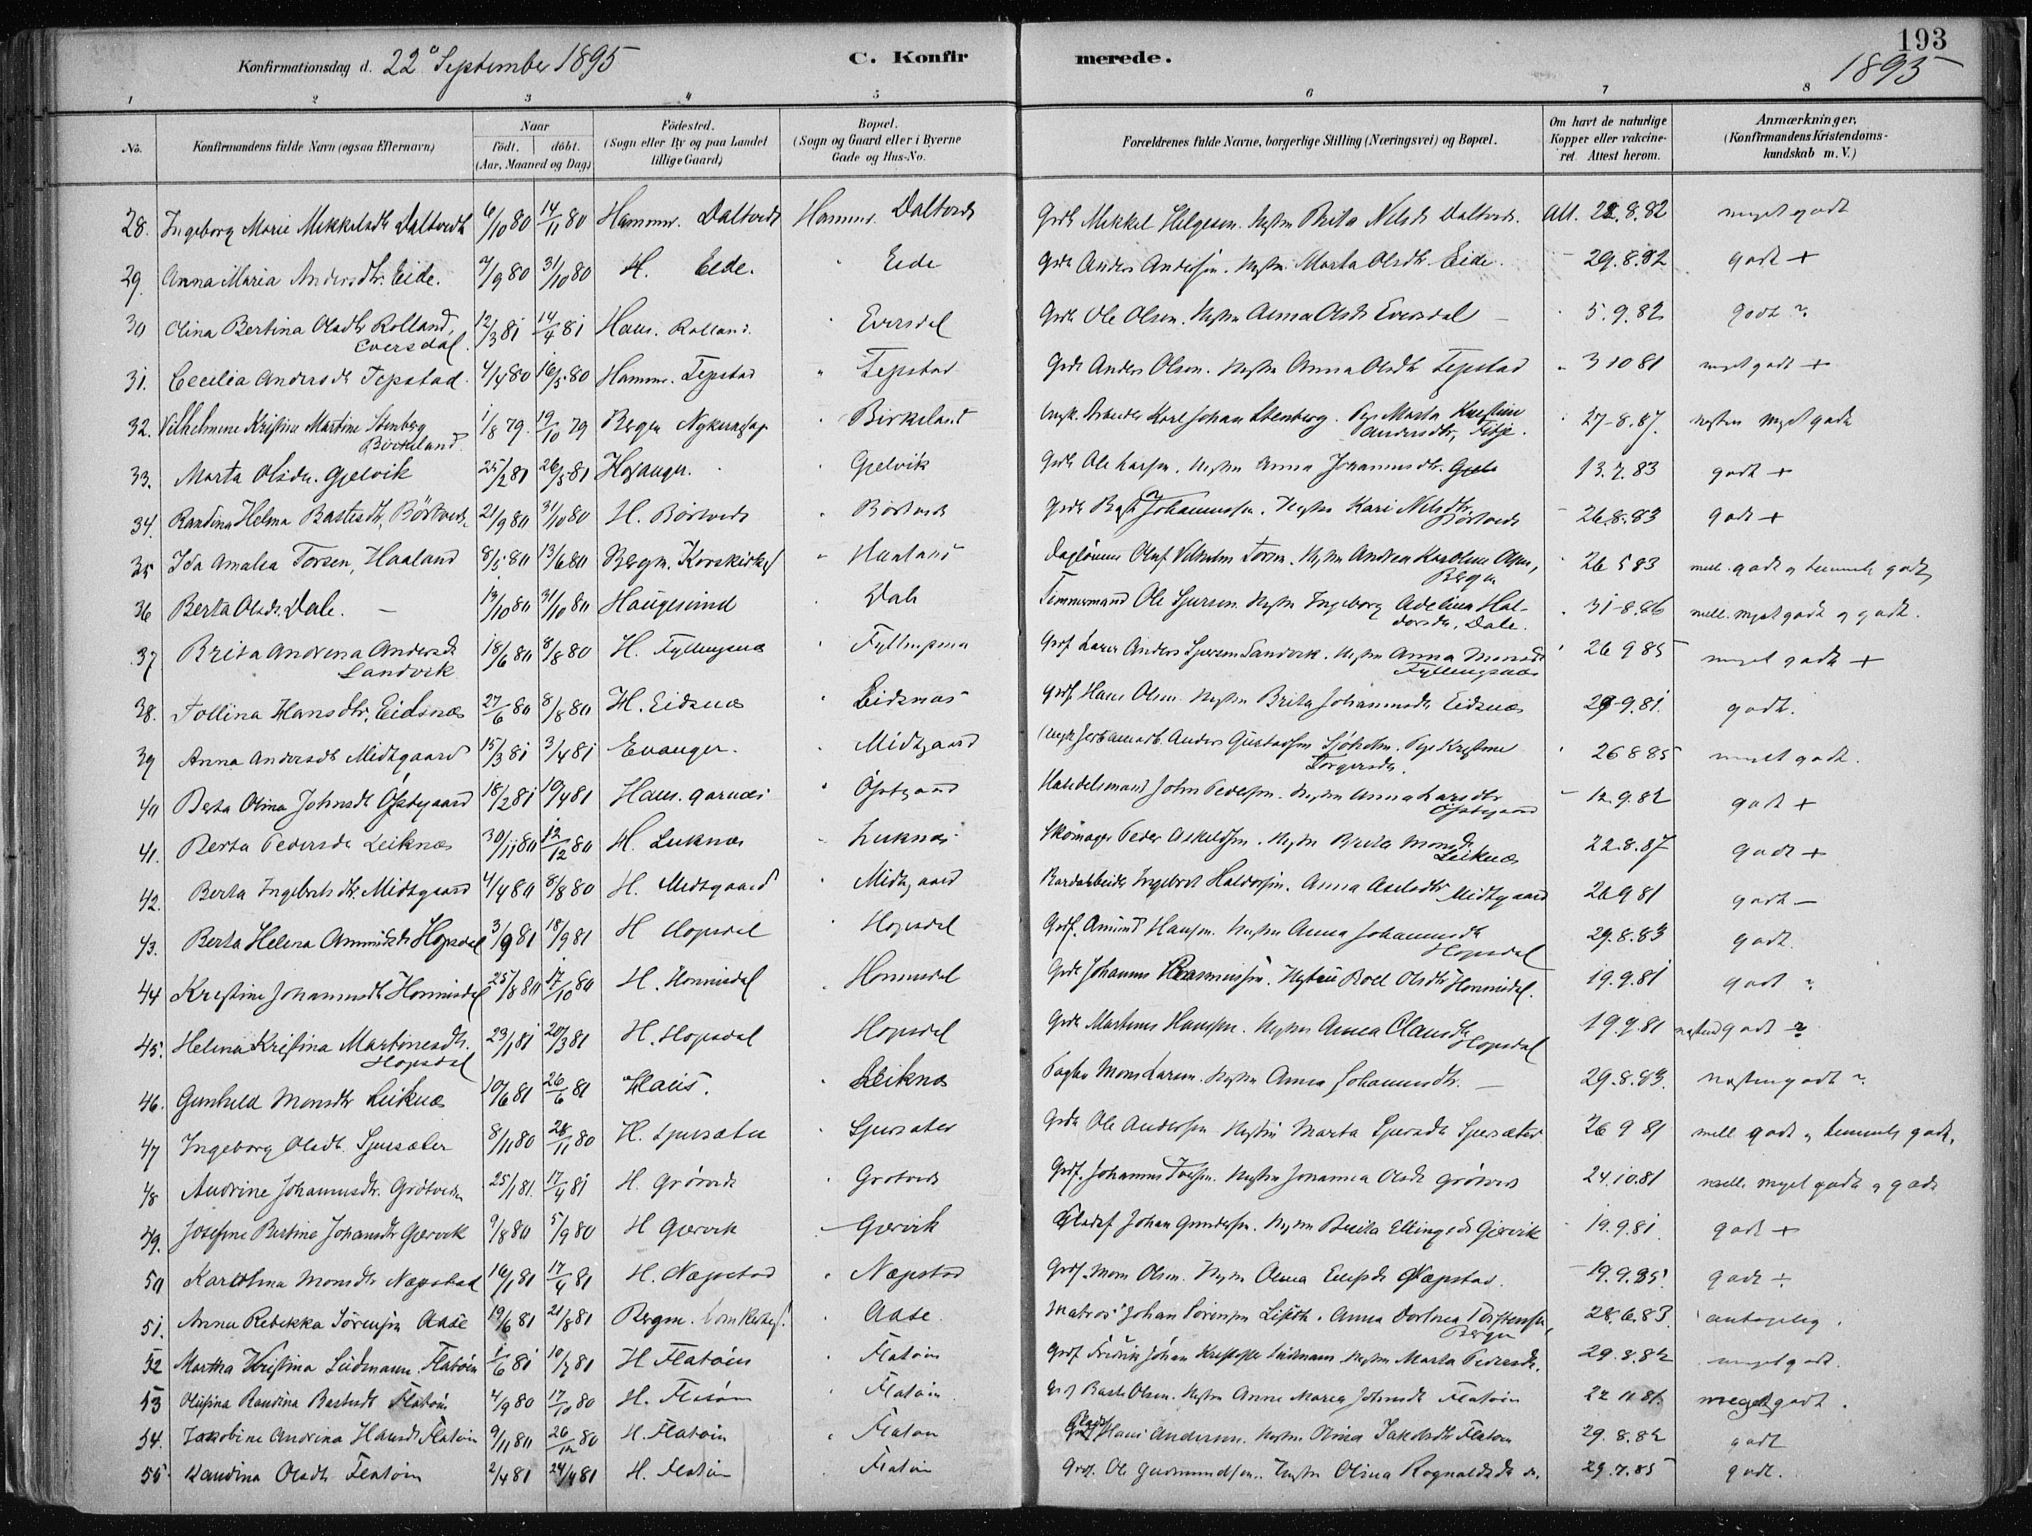 193
Konfirmationsdag d. 22° September 1895 C. Konfirmerede. 1895
1 2 3 4 5 6 7 8
No. Konfirmandens fulde Navn (ogsaa Efternavn) Naar Födt. döbt. (Aar, Maaned og Dag) Födested. (Sogn eller By og paa Landet tillige Gaard) Bopæl. (Sogn og Gaard eller i Byerne Gade og Hus-No. Forældrenes fulde Navne, borgerlige Stilling (Næringsvei) og Bopæl. Om havt de naturlige Kopper eller vakcineret. Attest herom. Anmærkninger, (Konfirmandens Kristendomskundskab m. V.)
28. Ingeborg Marie Mikkelsdtr Daltveidt 6/10 80 14/11 80 Hammr. Daltveidt Hammr. Daltveidt Grdb Mikkel Helgesen. Hustru Brita Nilsdtr Daltveidt. Att. 22.8.82 meget godt
29. Anna Maria Andersdtr. Eide. 7/9 80 31/10 80 H. Eide. Eide Grdb Anders Andersen. Hustru Marta Olsdtr. Eide. 29.8.82 godt +
30 Olina Bertina Olsdtr Rolland, Eversdal. 12/3 81 14/4 81 Haus. Rolland. Eversdal Grdb Ole Olsen. Hustru Anna Olsdtr Eversdal 5.9.82 godt ?
31. Cecilia Andersdtr Tepstad. 4/4 80 16/5 80 Hammr. Tepstad Tepstad Grdb Anders Olsen. Hustru Anna Olsdtr Tepstad 3 10 81 meget godt +
32. Vilhelmine Kristine Martine Stenberg Birkeland 1/8 79. 19/10 79 Bergen Nykirkesogn Birkeland Ungk. Arbeider Karl Johan Stenberg. Pige Marta Kristine Andersdtr, Fitje. 27-8.87. næsten meget godt
33. Marta Olsdtr. Gjelvik 25/2 81 26/5 81 Hosanger. Gjelvik Grdb Ole Larsen. Hustru Anna Johannesdtr. 13.7.83 godt +
34. Randina Helma Bastesdtr, Börtveidt. 21/9 80 31/10 80 H. Börtveidt Börtveidt Grdb Baste Johannessen. Hustru Kari Nilsdtr. Börtveidt 26.8.83 godt +
35 Ida Amalia Torsen, Haaland 8/5 80 13/6 80 Bergen. Korskirkes Haaland Daglönner Oluf Vilhelm Torsen. Hustru Andrea Karoline Olsen, Bergen 26 5 83 mell. godt og temmelig godt
36 Berta Olsdtr. Dale. 13/10 80 31/10 80 Haugesund Dale Timmermand Ole Sjursen. Hustru Ingeborg Adelina Haldorsdtr, Dale. 31-8.86 mell. meget godt og godt.
37 Brita Andrina Andersdtr Landvik 18/6 80 8/8 80 H. Fyllingsnæs Fyllingsnæs Anna Monsdtr Fyllingsnæs 26 9 85 meget godt +
38. Tollina Hansdtr, Eidsnæs 27/6 80 8/8 80 H. Eidsnæs Eidsnæs Grdf. Hans Olsen. Hustru Brita Johannesdtr Eidsnæs 29-9.81. godt.
39 Anna Andersdtr Midtgaard 15/3 81 3/4 81 Evanger. Midtgaard Anders Gustafsen Sjöholm. Pige Kristine Torgersdtr. 26 8 85 meget godt.
40 Berta Olina Johnsdtr Östgaard 18/2 81 10/4 81 Haus. Garnæs Östgaard Handelsmand John Pedersen. Hustru Anna Larsdtr Östgaard 12.9.82 godt +
41. Berta Pedersdtr Leiknæs 30/11 80 12/12 80 H. Leiknæs Leiknæs Skomager Peder Askeldsen. Hustru Brita Monsdtr Leiknæs 22.8.87 godt +
42. Berta Ingebretsdtr. Midtgaard 4/4 80 8/8 80 H. Midtgaard Midtgaard Ingebret Haldorsen. Anna Axelsdtr Midtgaard 26 9 81 godt —
43. Berta Helena Amundsdtr Hopsdal 3/9 81 18/9 81 H Hopsdal Hopsdal Grdf. Amund Hansen. Hustru Anna Johannesdtr Hopsdal 29.8.83 godt.
44 Kristine Johannesdtr Hommisdal 25/8 80 17/10 80 H. Hommisdal Hommisdal Grdb Johannes Rasmussen. Hustru Boel Olsdtr Hommisdal. 19.9.81 godt ?
45. Helena Kristina Martinesdtr. Hopsdal 23/1 81 20/3 81 H. Hopsdal Hopsdal Grdb Martines Hansen. Hustru Anna Clausdtr Hopsdal 19.9.81 næsten godt ?
46. Gunhild Monsdtr Leiknæs 10/6 81 26/6 81 Haus. Leiknæs Mons Larsen. Hustru Anna Johannesdtr. 29.8.83. næsten godt ?
47 Ingeborg Olsdtr. Sjursæter 8/11 80 28/11 80 H. Sjursæter Sjursæter Grdb Ole Andersen Hustru Marta Sjursdtr Sjursæter 26 9 81 mell godt og temmelig godt.
48 Andrine Johannesdtr. Grötveidt 25/1 81. 17/4 81 H. Grötveidt Grotveidt Grdf. Johannes Iversen. Hustru Johanna Olsdtr Grötveidt 24.10.81 mell. meget godt og godt
49. Josefine Bertine Johansdtr Gjervik 9/8 80 5/9 80 H Gjervik Gjervik Johan Gundersen. Hustru Brita Ellingsdtr Gjervik 19.9.81. godt +
50 Karolina Monsdtr Næpstad 16/1 81 17/4 81 H. Næpstad Næpstad Grdf. Mons Olsen. Hustru Næpstad. 19.9.85 godt ÷
51. Anna Rebekka Sörensen Aase 19/6 81 21/8 81 Bergen. Domkirkes. Aase. Matros Johan Sörensen Anna Dorthea Bergen 28.6.83. antagelig.
52 Martha Kristina Lüdemann. Flatöen 1/6 81 10/7 81 H Flatöen Flatöen Grdf Fredrik Johan Kristofer Lüdemann Hustru Marta Pedersdtr. 29.8.82 meget godt.
53 Olufina Randina Bastesdtr Flatöen 4/9 80 17/10 80 H. Flatöen Flatöen Grdf Baste Olsen. Hustru Anne Maria Johnsdtr Flatöen 22 11 81. meget godt.
54. Jakobine Andrina Hansdtr Flatöen 9/11 80 26/12 80 H. Flatöen Flatöen Hans Andersen. Hustru Olina Jakobsdtr Flatöen 29.8.82 godt
55 Randina Olsdtr Flatöen 2/4 81 24/4 81 H. Flatöen Flatöen Grdf. Ole Gudmundsen. Hustru Olina Rognaldsdtr do. 29.7.85 godt.